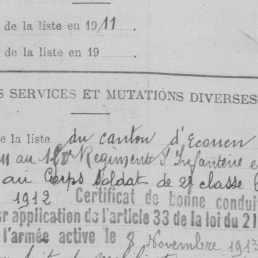 de la liste en 1911
de la liste en 19
S SERVICES ET MUTATIONS DIVERSES
de la liste du canton d'Ecouen
au Régiment d'Infanterie
au Corps Soldat de 2e classe
1912 Certificat de bonne condui
application de l'article 33 de la loi du 21
l'armée active le 8 Novembre 191